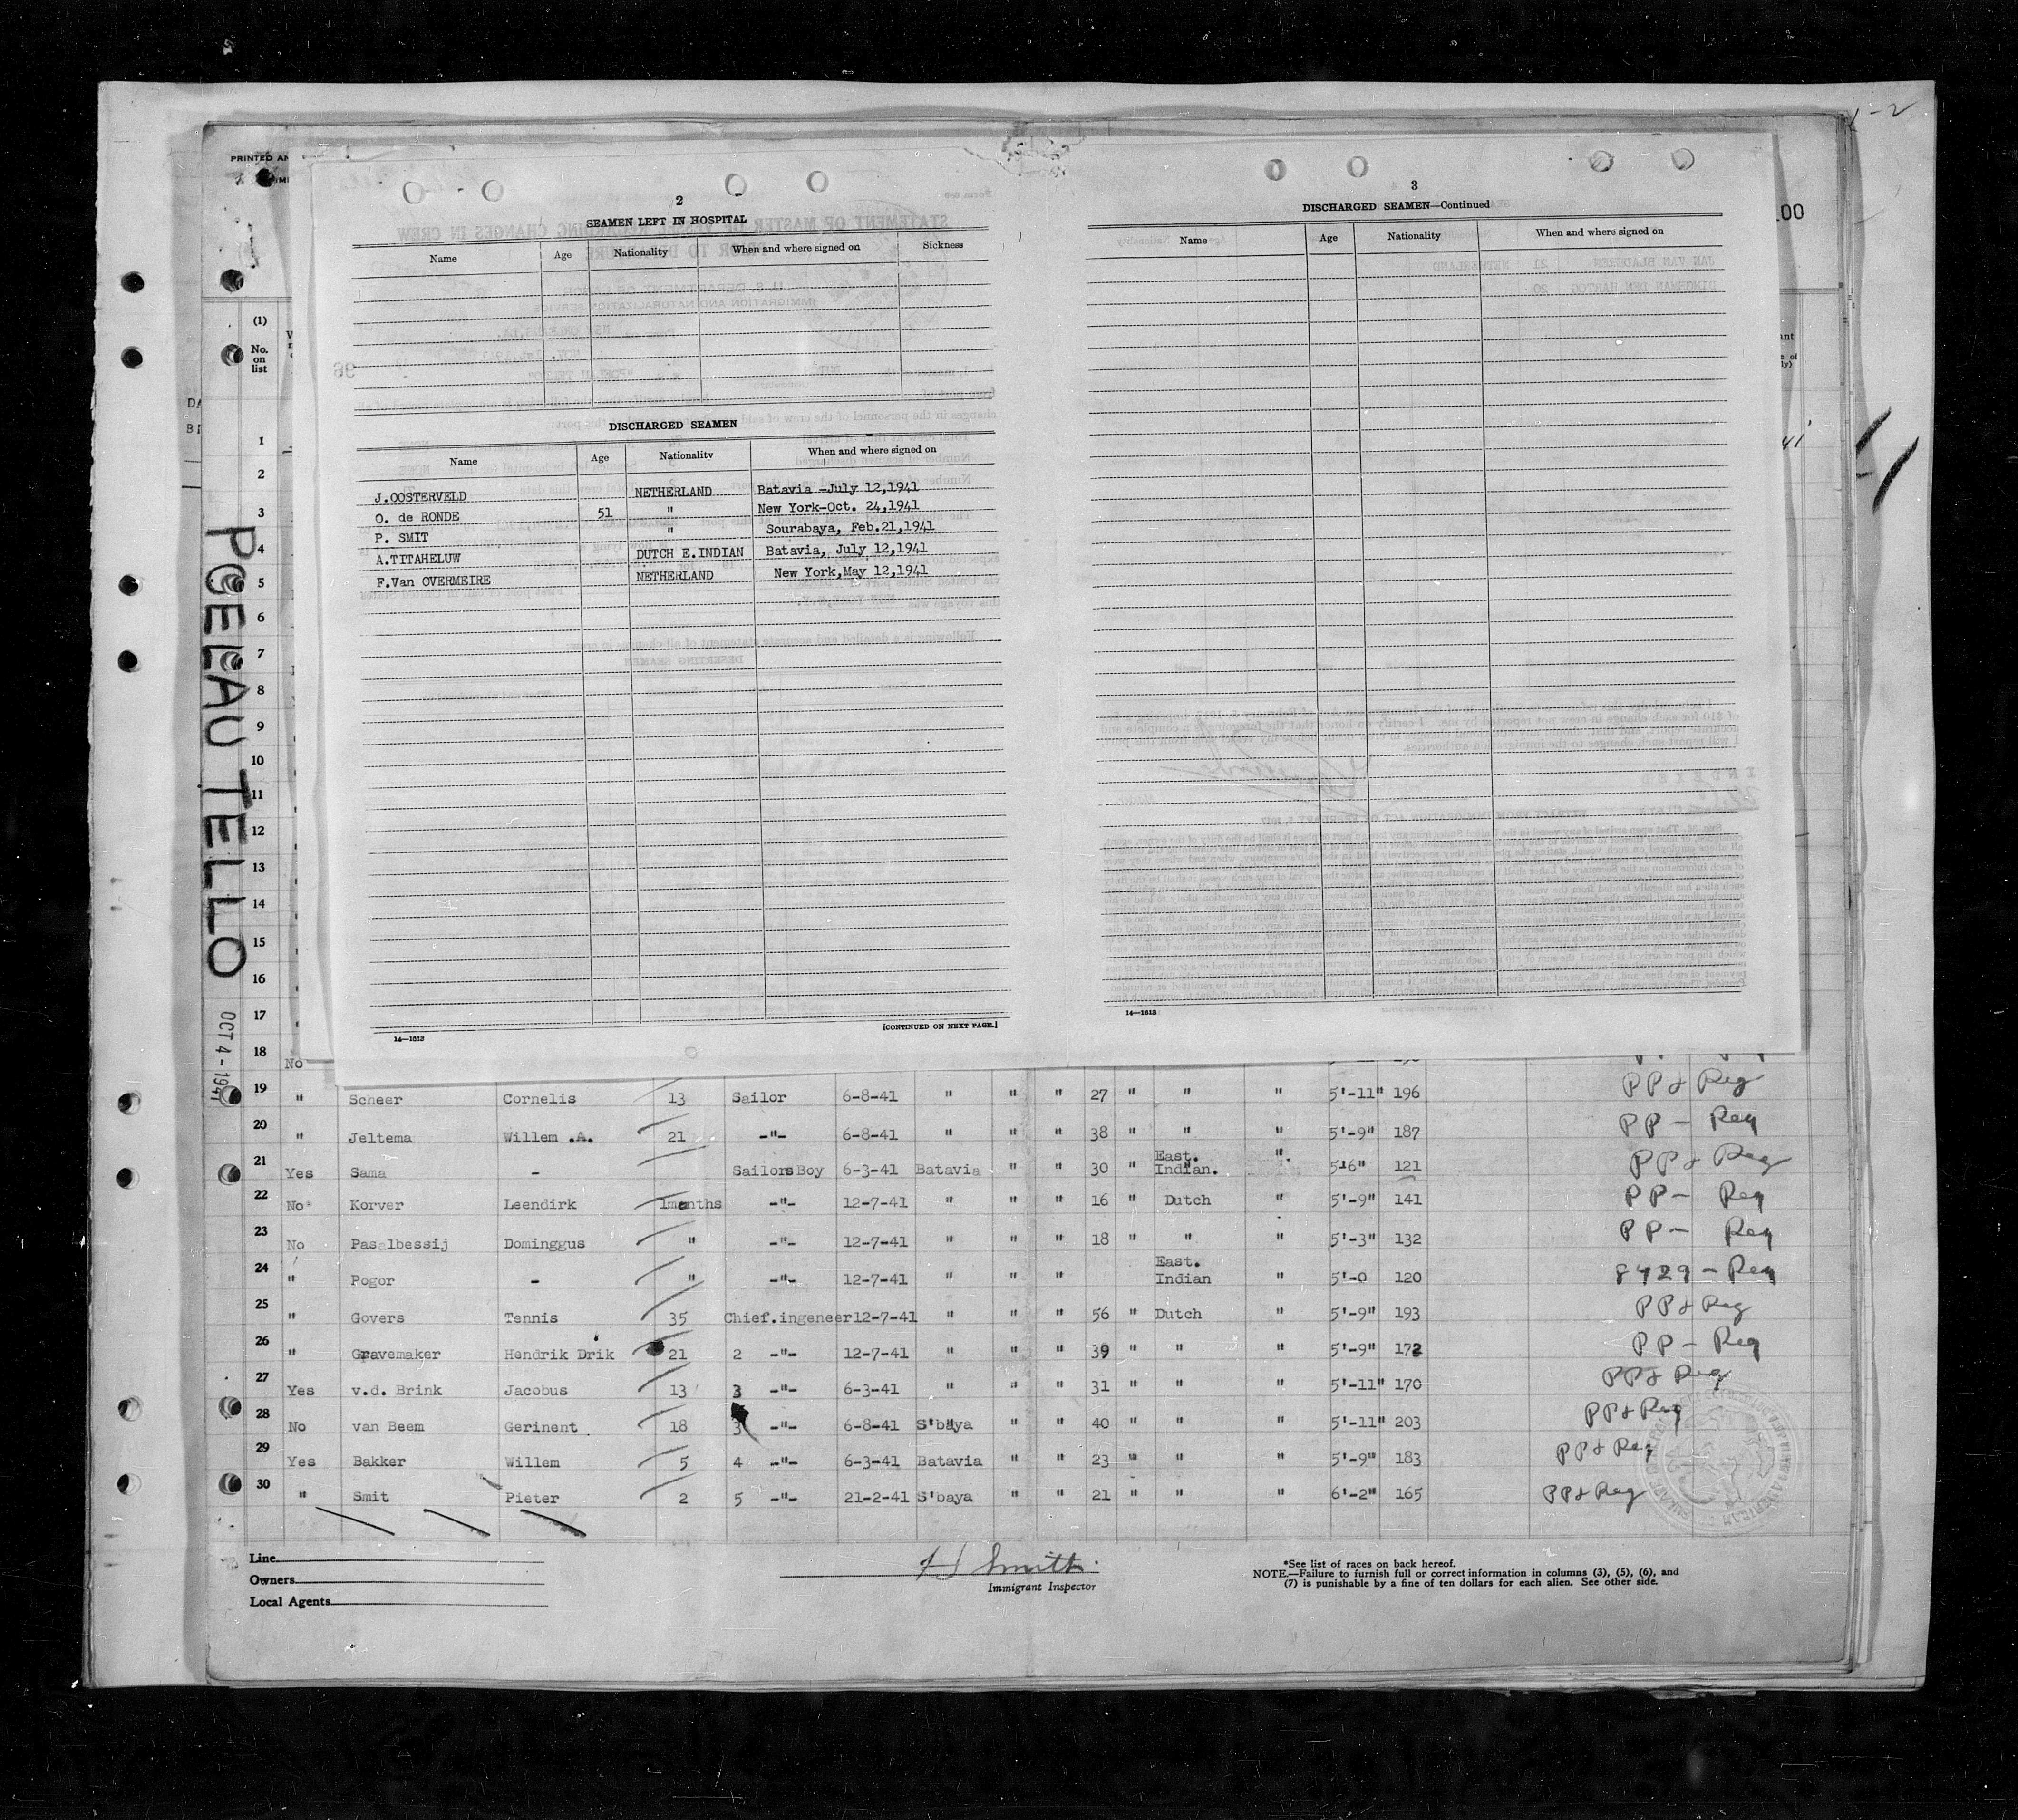 PRINTED AN
1-2
2
SEAMEN LEFT IN HOSPITAL
Name Age Nationality When and where signed on Sickness
DISCHARGED SEAMEN
Name Age Nationality When and where signed on
J.OOSTERVELD NETHERLAND Batavia -July 12,1941
O. de RONDE 51 " New York-Oct. 24,1941
P. SMIT " Sourabaya, Feb.21,1941
A.TITAHELUW DUTCH E.INDIAN Batavia, July 12,1941
F.Van OVERMEIRE NETHERLAND New York,May 12,1941
[CONTINUED ON NEXT PAGE.]
14—1613
3
DISCHARGED SEAMEN—Continued
Name Age Nationality When and where signed on
14—1613
.00
(1)
No.
on
list
1
2
3
4
5
6
7
8
9
10
11
12
13
14
15
16
17
18 No
POELAU TELLO
OCT 4 - 1941
19 " Scheer Cornelis 13 Sailor 6-8-41 " " " 27 " " " 5'-11" 196 PP & Reg
20 " Jeltema Willem .A. 21 -"- 6-8-41 " " " 38 " " " 5'-9" 187 PP - Reg
21 Yes Sama - Sailors Boy 6-3-41 Batavia " " 30 " East. Indian. " 5-6" 121 PP & Reg
22 No Korver Leendirk 1months -"- 12-7-41 " " " 16 " Dutch " 5'-9" 141 PP - Reg
23 No Pasalbessij Dominggus " -"- 12-7-41 " " " 18 " " " 5'-3" 132 PP - Reg
24 " Pogor - " -"- 12-7-41 " " " East. Indian " 5'-0 120 8429 - Reg
25 " Govers Tennis 35 Chief.ingeneer 12-7-41 " " " 56 " Dutch " 5'-9" 193 PP & Reg
26 " Gravemaker Hendrik Drik 21 2 -"- 12-7-41 " " " 39 " " " 5'-9" 172 PP - Reg
27 Yes v.d. Brink Jacobus 13 3 -"- 6-3-41 " " " 31 " " " 5'-11" 170 PP & Reg
28 No van Beem Gerinent 18 3 -"- 6-8-41 S'baya " " 40 " " " 5'-11" 203 PP & Reg
29 Yes Bakker Willem 5 4 -"- 6-3-41 Batavia " " 23 " " " 5'-9" 183 PP & Reg
30 " Smit Pieter 2 5 -"- 21-2-41 S'baya " " 21 " " " 6'-2" 165 PP & Reg
Line
Owners
Local Agents
H Smith
Immigrant Inspector
*See list of races on back hereof.
NOTE.—Failure to furnish full or correct information in columns (3), (5), (6), and
(7) is punishable by a fine of ten dollars for each alien. See other side.